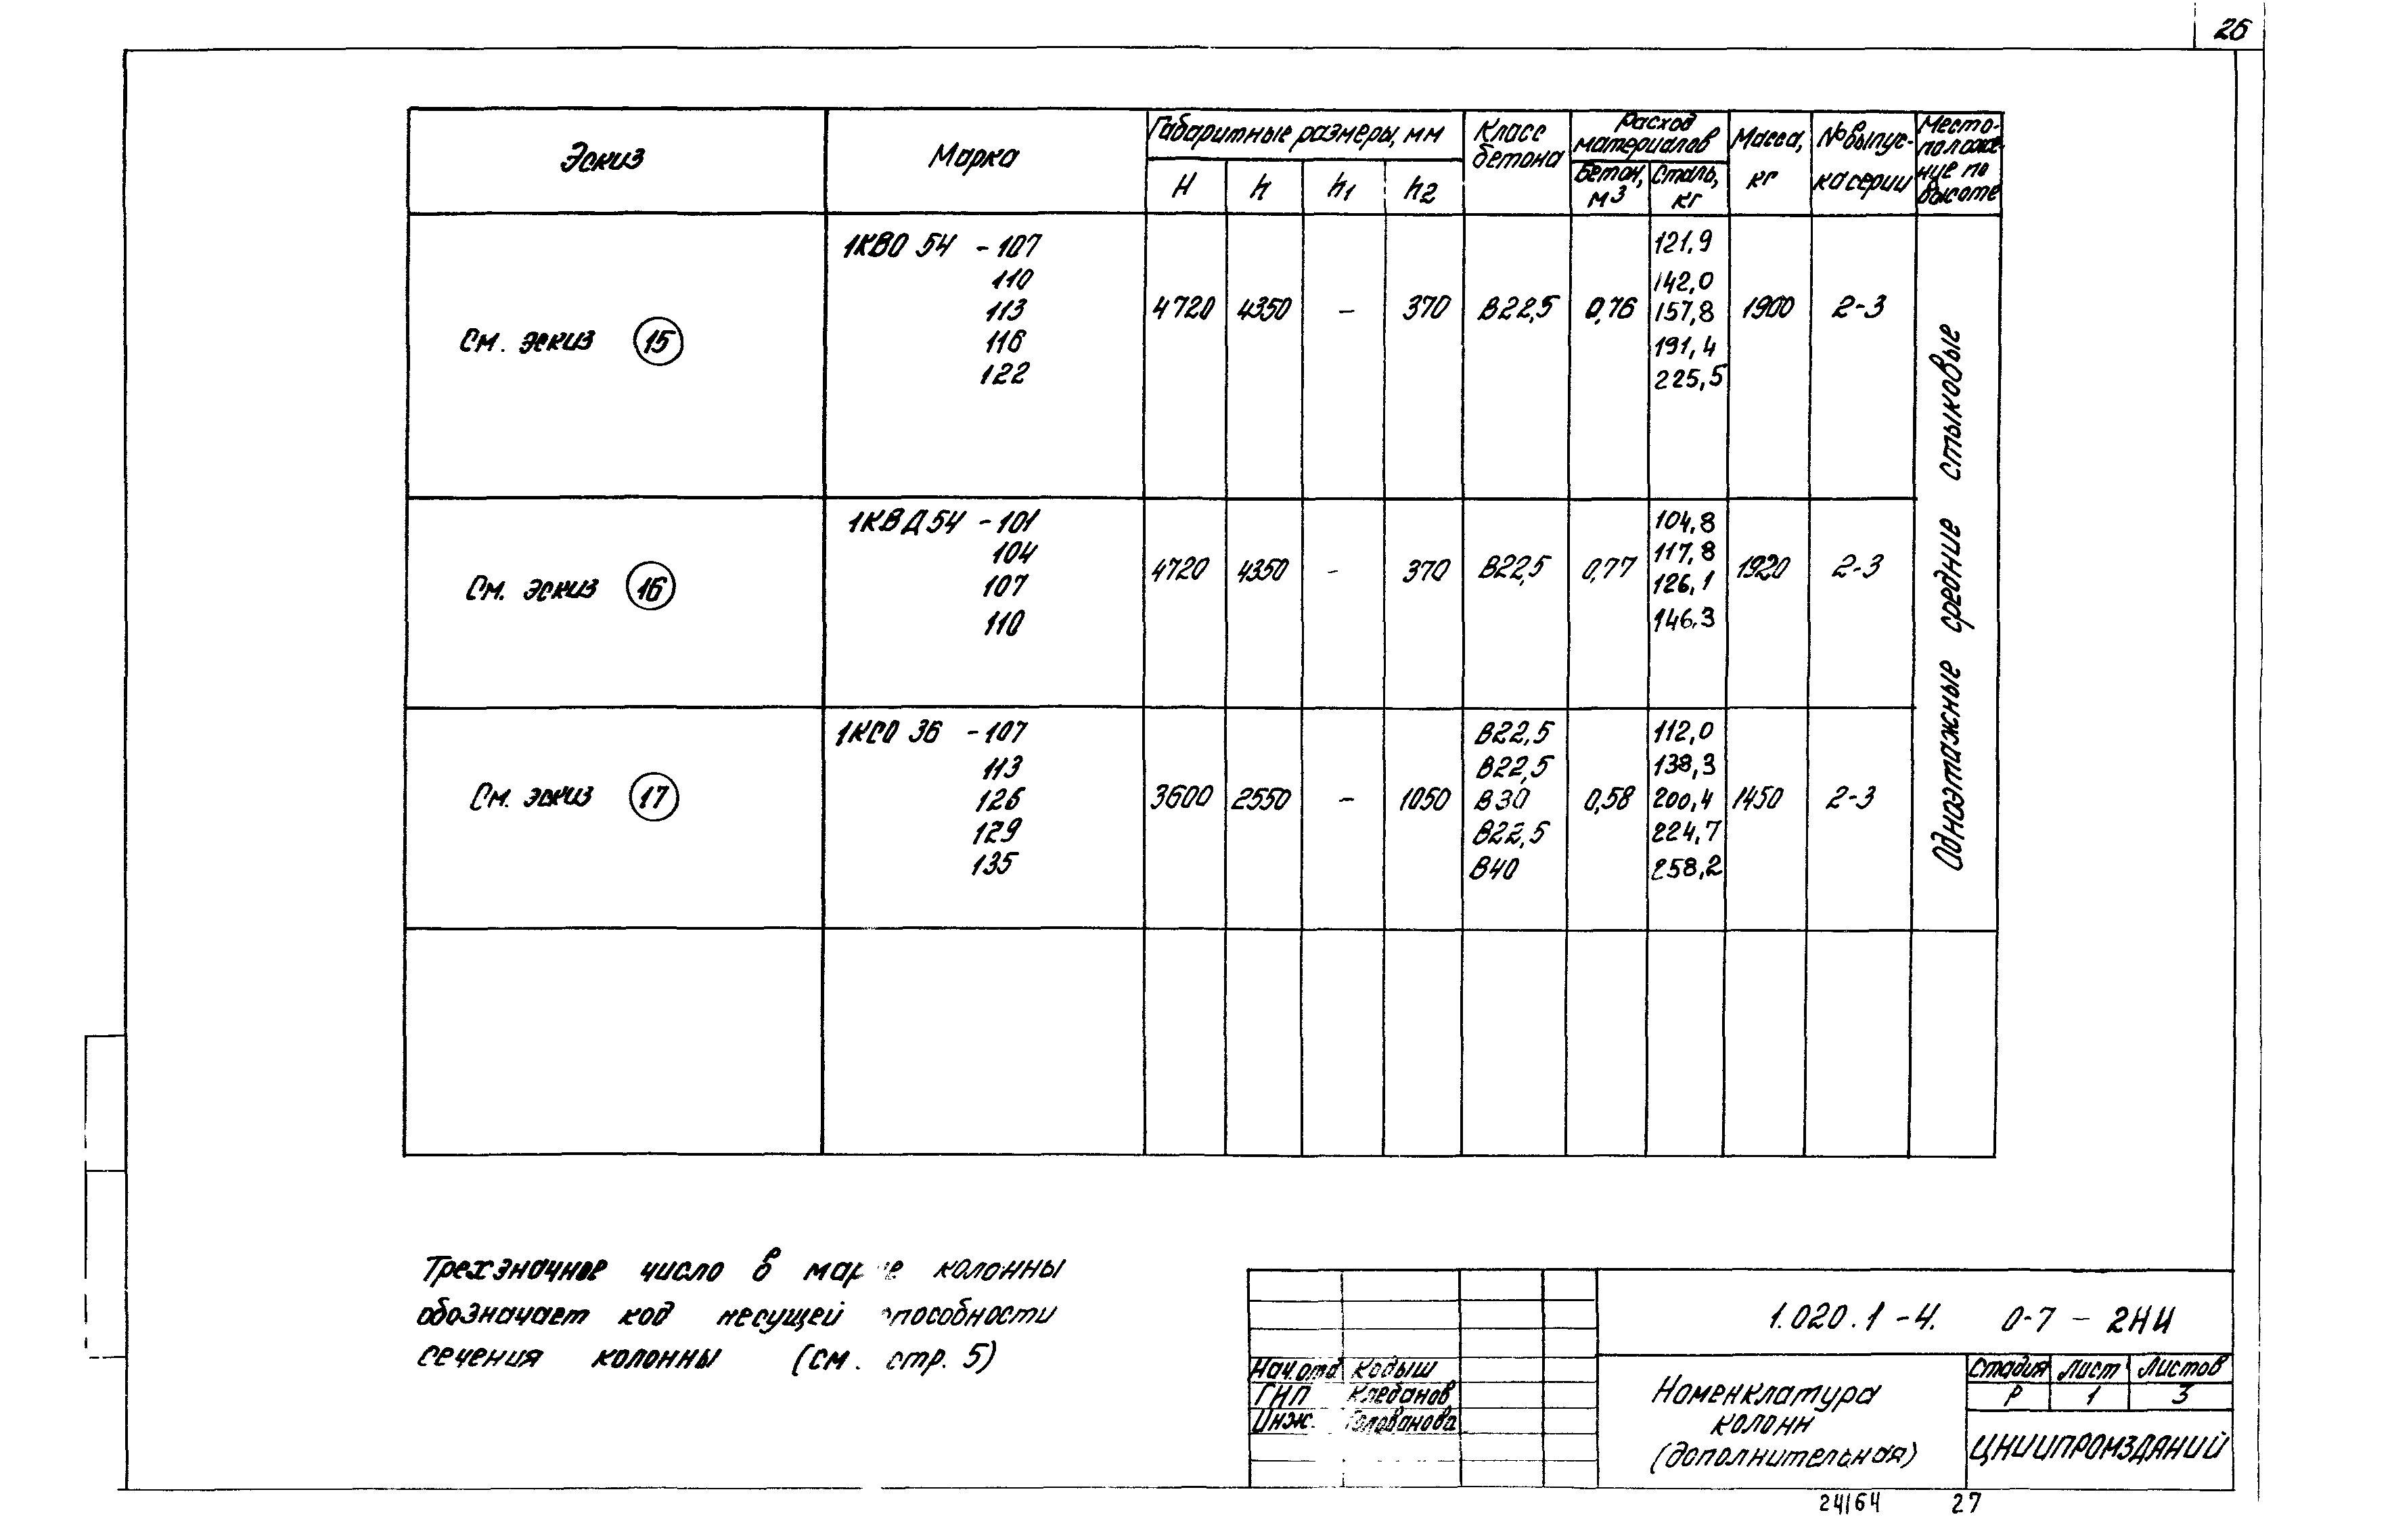 26
Эскиз
Марка
Габаритные размеры, мм
H h h1 h2
Класс бетона
Расход материалов
Бетон, м3
Сталь, кг
Масса, кг
№ выпус-
ка серии
Место-
положе-
ние по
высоте
См. эскиз 15
1КВО 54 -107
110
113
116
122
4720 4350 - 370 В22,5 0,76
121,9
142,0
157,8
191,4
225,5
1900 2-3
См. эскиз 16
1КВД 54 -101
104
107
110
4720 4350 - 370 В22,5 0,77
104,8
117,8
126,1
146.3
1920 2-3
См. эскиз 17
1КСО 36 -107
113
126
129
135
3600 2550 - 1050
В22,5
В22,5
В30
В22,5
В40
0,58
112,0
138,3
200,4
224,7
258,2
1450 2-3
Одноэтажные средние стыковые
Трехзначное число в марке колонны
обозначает код несущей способности
сечения колонны (см. стр. 5)
1.020.1-4. 0-7-2НИ
Нач.отд. Кодыш
ГИП Клебанов
Инж. Голованова
Номенклатура
колонн
(дополнительная)
Стадия Лист Листов
Р 1 3
ЦНИИПРОМЗДАНИЙ
24164 27